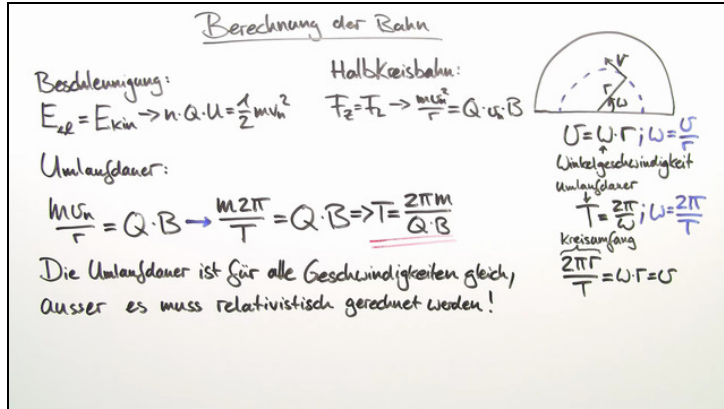 Berechnung der Bahn
Beschleunigung:
E_el = E_kin → n·Q·U = 1/2 mv_n²
Halbkreisbahn:
F_Z = F_L → mv_n²/r = Q·v_n·B
Umlaufdauer:
mv_n/r = Q·B → m2π/T = Q·B => T = 2πm/Q·B
Die Umlaufdauer ist für alle Geschwindigkeiten gleich,
ausser es muss relativistisch gerechnet werden!
v
r
ω
v = ω·r ; ω = v/r
Winkelgeschwindigkeit
Umlaufdauer
T = 2π/ω ; ω = 2π/T
Kreisumfang
2πr/T = ω·r = v